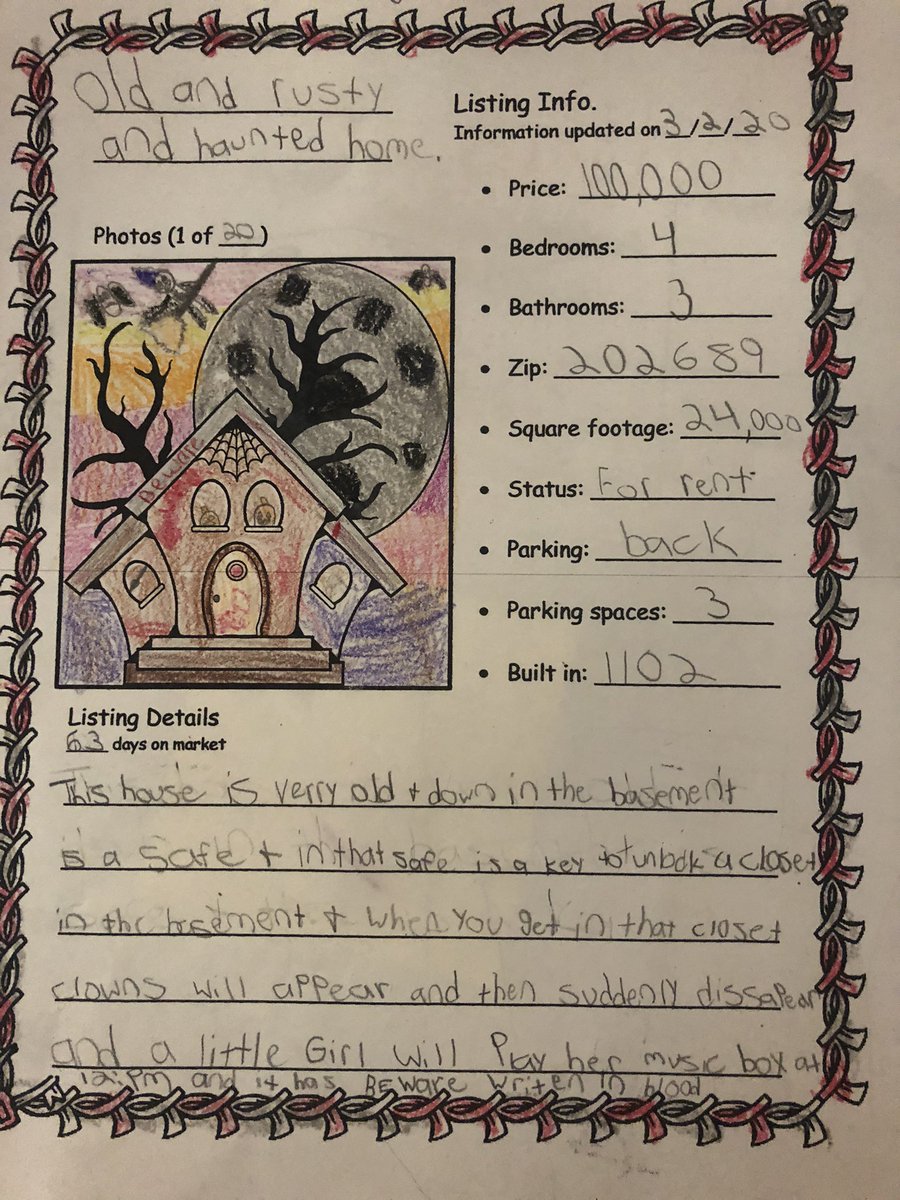 Old and rusty
and haunted home.
Listing Info.
Information updated on 3/2/20
• Price: 100,000
• Bedrooms: 4
• Bathrooms: 3
• Zip: 202689
• Square footage: 24,000
• Status: For rent
• Parking: back
• Parking spaces: 3
• Built in: 1102
Photos (1 of 20)
Listing Details
63 days on market
This house is verry old + down in the basement
is a safe + in that safe is a key to unlock a closet
in the basement + when you get in that closet
clowns will appear and then suddenly dissapear
and a little Girl will Play her music box at
12:PM and it has BEWare writen in blood